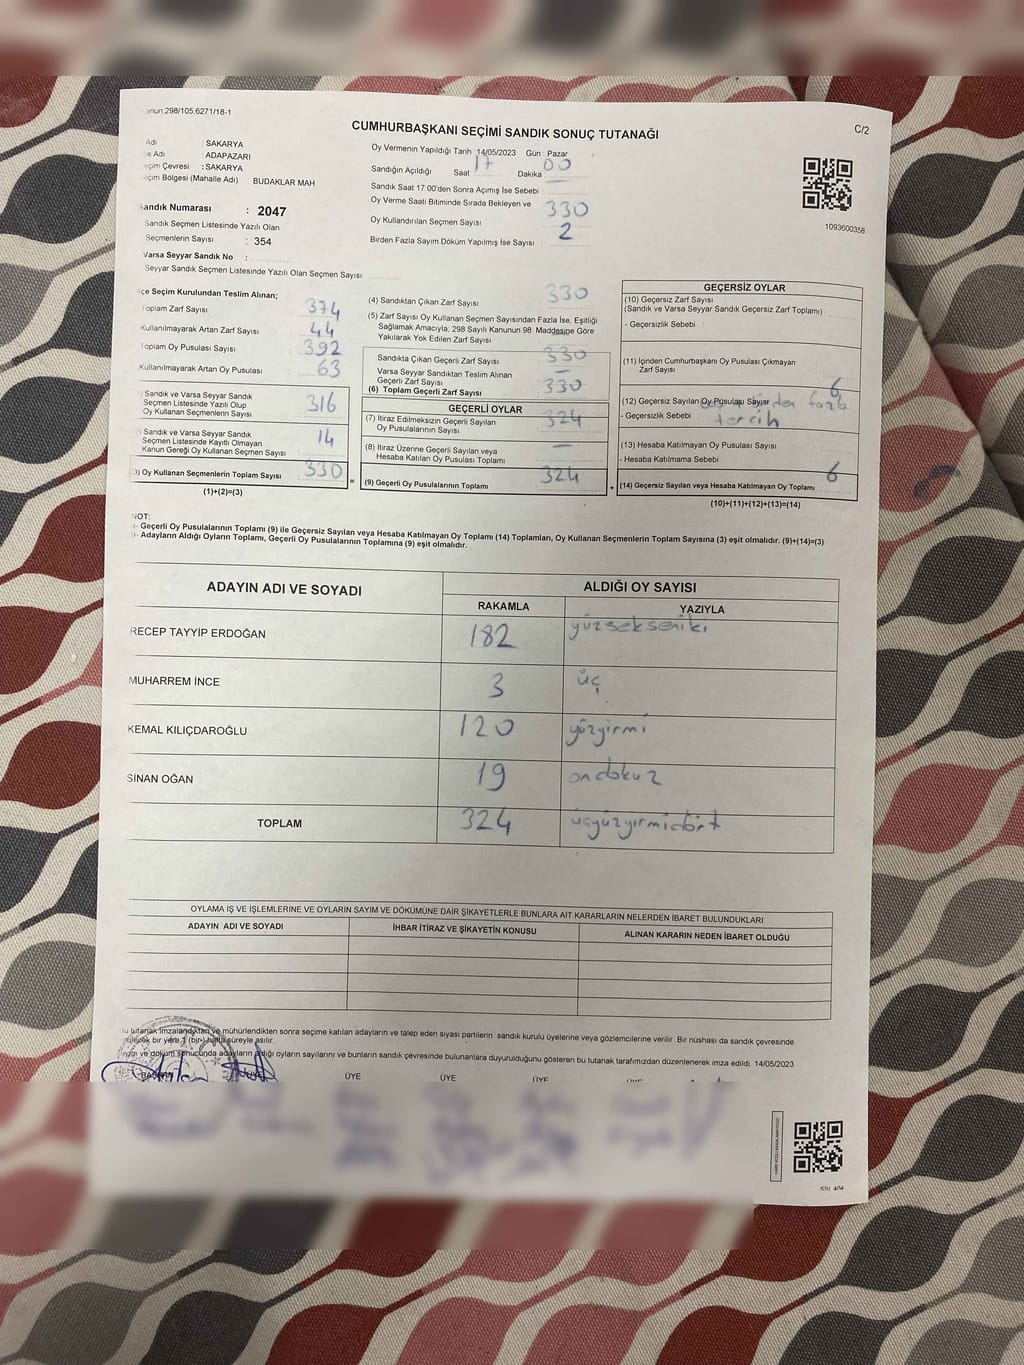 298/105,6271/18-1
CUMHURBAŞKANI SEÇİMİ SANDIK SONUÇ TUTANAĞI
C/2
Adı : SAKARYA
Adı : ADAPAZARI
Çevresi : SAKARYA
Bölgesi (Mahalle Adı) : BUDAKLAR MAH
Sandık Numarası : 2047
Sandık Seçmen Listesinde Yazılı Olan
Seçmenlerin Sayısı : 354
Varsa Seyyar Sandık No :
Seyyar Sandık Seçmen Listesinde Yazılı Olan Seçmen Sayısı:
Oy Vermenin Yapıldığı Tarih : 14/05/2023 Gün : Pazar
Sandığın Açıldığı Saat 17 Dakika 00
Sandık Saat 17.00'den Sonra Açımış İse Sebebi :
Oy Verme Saati Bitiminde Sırada Bekleyen ve
Oy Kullandırılan Seçmen Sayısı 330
Birden Fazla Sayım Döküm Yapılmış İse Sayısı : 2
1093600358
Seçim Kurulundan Teslim Alınan;
Toplam Zarf Sayısı 374
Kullanılmayarak Artan Zarf Sayısı 44
Toplam Oy Pusulası Sayısı 392
Kullanılmayarak Artan Oy Pusulası 63
Sandık ve Varsa Seyyar Sandık
Seçmen Listesinde Yazılı Olup
Oy Kullanan Seçmenlerin Sayısı 316
Sandık ve Varsa Seyyar Sandık
Seçmen Listesinde Kayıtlı Olmayan
Kanun Gereği Oy Kullanan Seçmen Sayısı 14
Oy Kullanan Seçmenlerin Toplam Sayısı 330 =
(1)+(2)=(3)
(4) Sandıktan Çıkan Zarf Sayısı 330
(5) Zarf Sayısı Oy Kullanan Seçmen Sayısından Fazla İse, Eşitliği
Sağlamak Amacıyla; 298 Sayılı Kanunun 98. Maddesine Göre
Yakılarak Yok Edilen Zarf Sayısı –
Sandıkta Çıkan Geçerli Zarf Sayısı 330
Varsa Seyyar Sandıktan Teslim Alınan
Geçerli Zarf Sayısı –
(6) Toplam Geçerli Zarf Sayısı 330
GEÇERLİ OYLAR
(7) İtiraz Edilmeksizin Geçerli Sayılan
Oy Pusulalarının Sayısı 324
(8) İtiraz Üzerine Geçerli Sayılan veya
Hesaba Katılan Oy Pusulası Toplamı –
(9) Geçerli Oy Pusulalarının Toplamı 324 +
GEÇERSİZ OYLAR
(10) Geçersiz Zarf Sayısı
(Sandık ve Varsa Seyyar Sandık Geçersiz Zarf Toplamı)
- Geçersizlik Sebebi :
(11) İçinden Cumhurbaşkanı Oy Pusulası Çıkmayan
Zarf Sayısı
(12) Geçersiz Sayılan Oy Pusulası Sayısı 6
- Geçersizlik Sebebi fazla
tercih
(13) Hesaba Katılmayan Oy Pusulası Sayısı
- Hesaba Katılmama Sebebi
(14) Geçersiz Sayılan veya Hesaba Katılmayan Oy Toplamı : 6
(10)+(11)+(12)+(13)=(14)
NOT:
- Geçerli Oy Pusulalarının Toplamı (9) ile Geçersiz Sayılan veya Hesaba Katılmayan Oy Toplamı (14) Toplamları, Oy Kullanan Seçmenlerin Toplam Sayısına (3) eşit olmalıdır. (9)+(14)=(3)
- Adayların Aldığı Oyların Toplamı, Geçerli Oy Pusulalarının Toplamına (9) eşit olmalıdır.
ADAYIN ADI VE SOYADI ALDIĞI OY SAYISI
RAKAMLA YAZIYLA
RECEP TAYYİP ERDOĞAN 182 yüzsekseniki
MUHARREM İNCE 3 üç
KEMAL KILIÇDAROĞLU 120 yüzyirmi
SİNAN OĞAN 19 ondokuz
TOPLAM 324 üçyüzyirmidört
OYLAMA İŞ VE İŞLEMLERİNE VE OYLARIN SAYIM VE DÖKÜMÜNE DAİR ŞİKAYETLERLE BUNLARA AİT KARARLARIN NELERDEN İBARET BULUNDUKLARI
ADAYIN ADI VE SOYADI İHBAR İTİRAZ VE ŞİKAYETİN KONUSU ALINAN KARARIN NEDEN İBARET OLDUĞU
tutanak imzalandıktan ve mühürlendikten sonra seçime katılan adayların ve talep eden siyasi partilerin sandık kurulu üyelerine ve gözlemcilerine verilir. Bir nüshası da sandık çevresinde
bir yere 1 (bir) hafta süreyle asılır.
ve döküm sonucunda adayların aldığı oyların sayılarını ve bunların sandık çevresinde bulunanlara duyurulduğunu gösteren bu tutanak tarafımızdan düzenlenerek imza edildi. 14/05/2023
BAŞKAN ÜYE ÜYE ÜYE ÜYE ÜYE